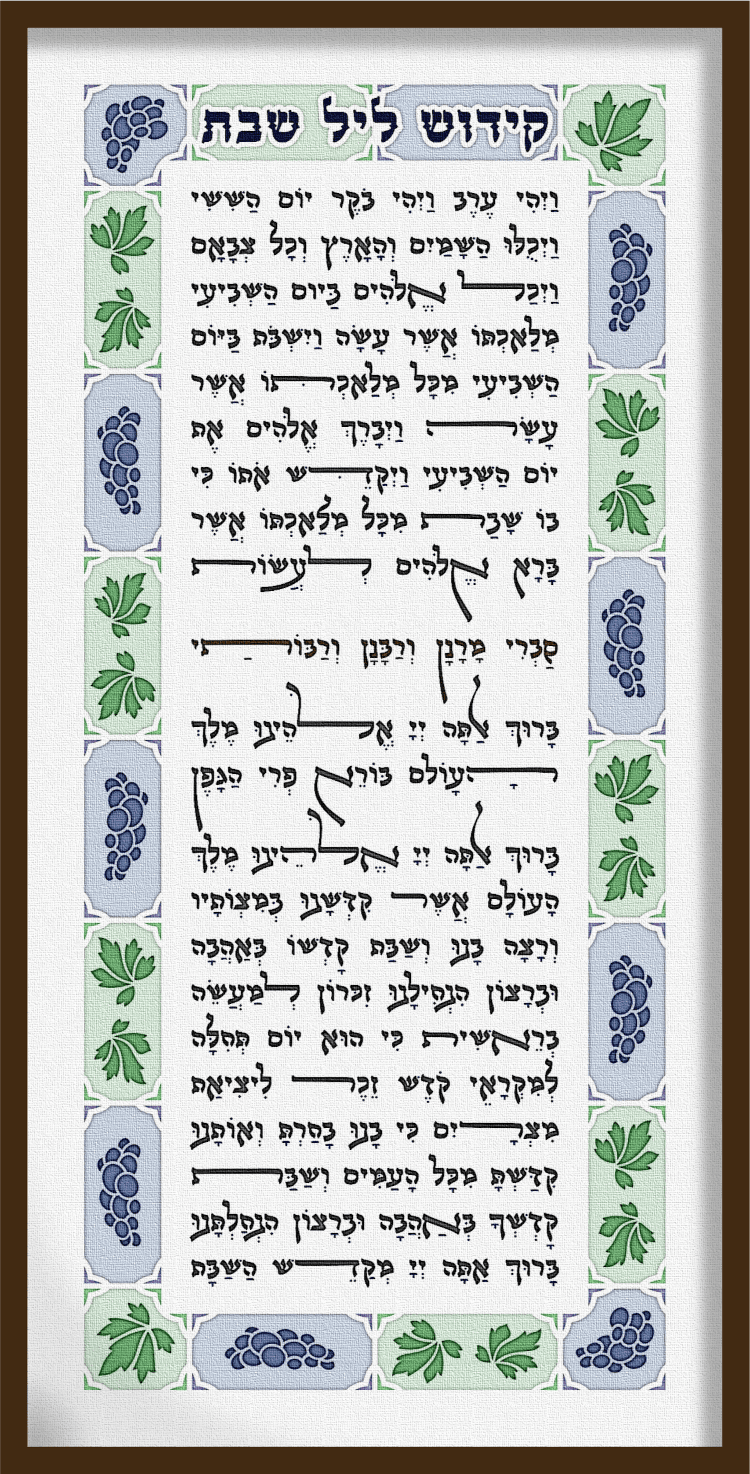 קידוש ליל שבת
וַיְהִי עֶרֶב וַיְהִי בֹקֶר יוֹם הַשִּׁשִּׁי
וַיְכֻלּוּ הַשָּׁמַיִם וְהָאָרֶץ וְכָל צְבָאָם
וַיְכַל אֱלֹהִים בַּיּוֹם הַשְּׁבִיעִי
מְלַאכְתּוֹ אֲשֶׁר עָשָׂה וַיִּשְׁבֹּת בַּיּוֹם
הַשְּׁבִיעִי מִכָּל מְלַאכְתּוֹ אֲשֶׁר
עָשָׂה וַיְבָרֶךְ אֱלֹהִים אֶת
יוֹם הַשְּׁבִיעִי וַיְקַדֵּשׁ אֹתוֹ כִּי
בוֹ שָׁבַת מִכָּל מְלַאכְתּוֹ אֲשֶׁר
בָּרָא אֱלֹהִים לַעֲשׂוֹת
סַבְרִי מָרָנָן וְרַבָּנָן וְרַבּוֹתַי
בָּרוּךְ אַתָּה יְיָ אֱלֹהֵינוּ מֶלֶךְ
הָעוֹלָם בּוֹרֵא פְּרִי הַגָּפֶן
בָּרוּךְ אַתָּה יְיָ אֱלֹהֵינוּ מֶלֶךְ
הָעוֹלָם אֲשֶׁר קִדְּשָׁנוּ בְּמִצְוֹתָיו
וְרָצָה בָנוּ וְשַׁבַּת קָדְשׁוֹ בְּאַהֲבָה
וּבְרָצוֹן הִנְחִילָנוּ זִכָּרוֹן לְמַעֲשֵׂה
בְרֵאשִׁית כִּי הוּא יוֹם תְּחִלָּה
לְמִקְרָאֵי קֹדֶשׁ זֵכֶר לִיצִיאַת
מִצְרָיִם כִּי בָנוּ בָחַרְתָּ וְאוֹתָנוּ
קִדַּשְׁתָּ מִכָּל הָעַמִּים וְשַׁבַּת
קָדְשְׁךָ בְּאַהֲבָה וּבְרָצוֹן הִנְחַלְתָּנוּ
בָּרוּךְ אַתָּה יְיָ מְקַדֵּשׁ הַשַּׁבָּת